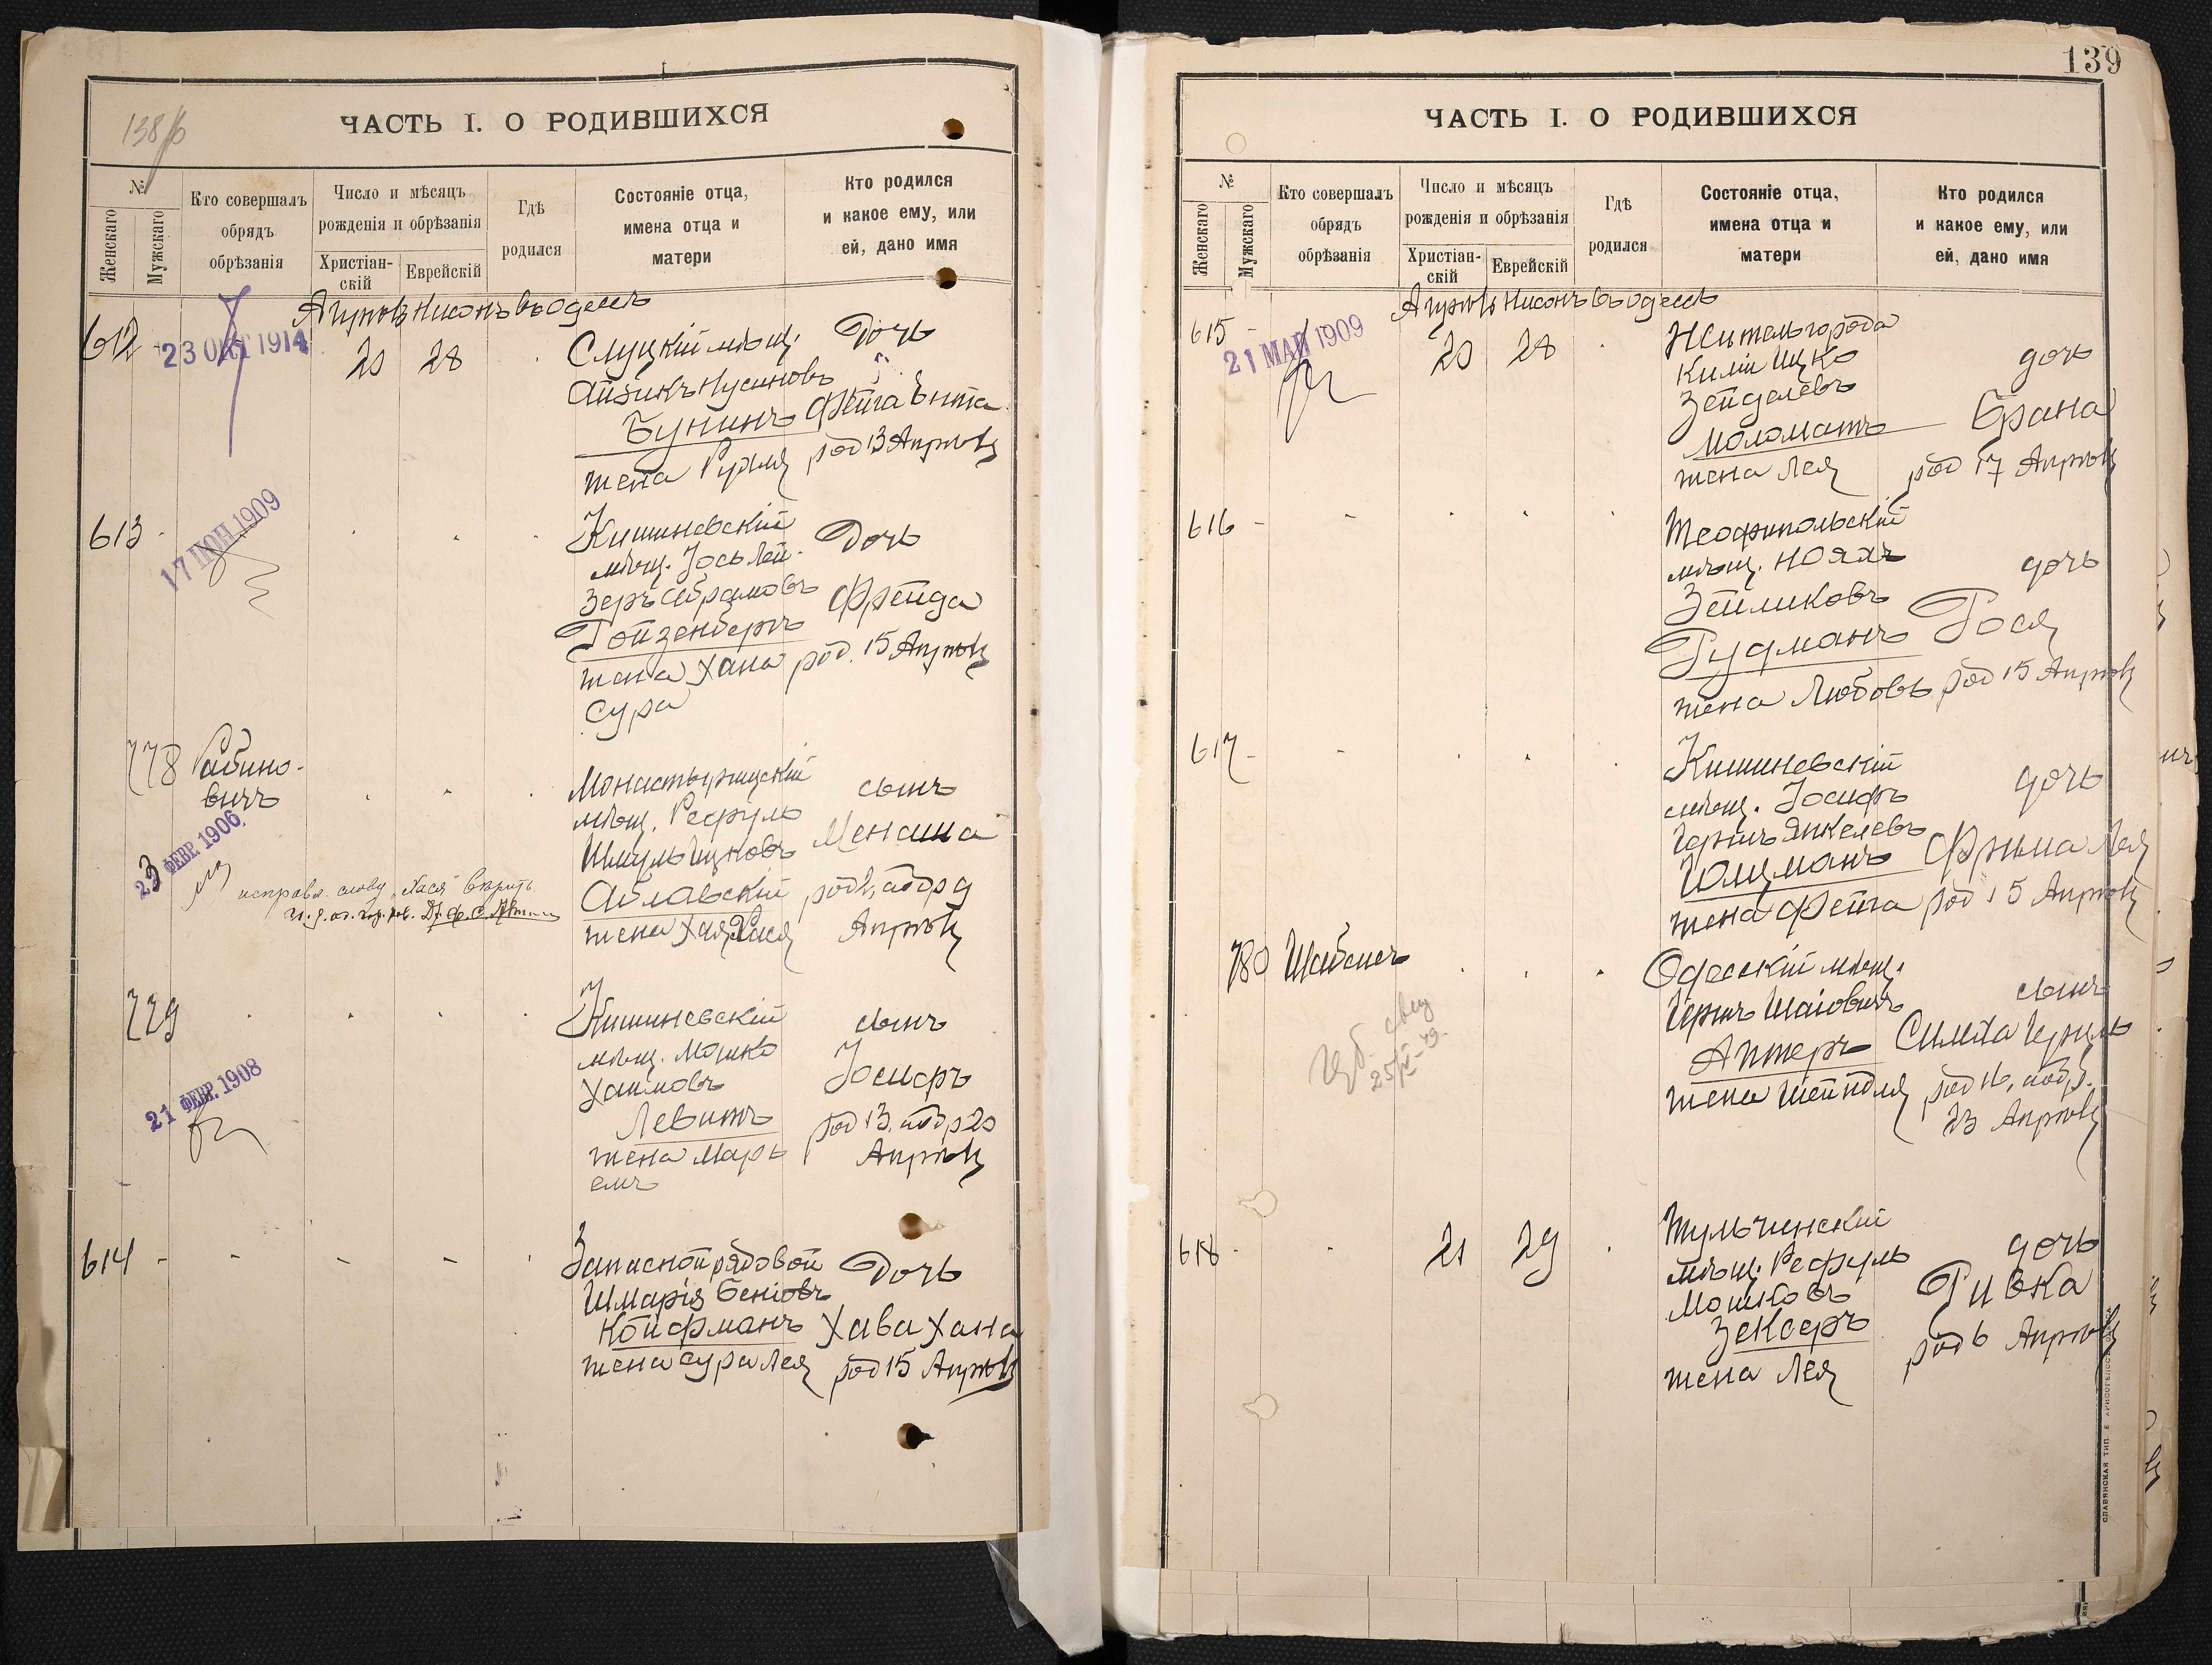 138/б
ЧАСТЬ I. О РОДИВШИХСЯ
№
Женскаго
Мужскаго
Кто совершалъ
обрядъ
обрѣзанія
Число и мѣсяцъ
рожденія и обрѣзанія
Христіан-
скій
Еврейскій
Гдѣ
родился
Состояніе отца,
имена отца и
матери
Кто родился
и какое ему, или
ей, дано имя
Апрѣль Нисонъ въ Одессѣ
612 - 23 ОКТ 1914
20 28
Слуцкій мѣщ.
Айзикъ Нусиновъ
Бунинъ
жена Рухля
Дочь
Фейга Ента
род 13 Апрѣля
613 -
17 ІЮН 1909
Кишиневскій
мѣщ. Іось Лей-
зеръ Абрамовъ
Гойзенбергъ
жена Хана
Сура
Дочь
Фрейда
род. 15 Апрѣля
778 Рабино-
вичъ
23 ФЕВР. 1906
Монастырищскій
мѣщ. Рефуль
Шмуль Ицковъ
жена Хая Хася
сынъ
Менаша
Апрѣля
779
21 ФЕВР. 1908
Кишиневскій
мѣщ. Мошко
Хаимовъ
Левитъ
жена Марь
емъ
сынъ
Іосифъ
род 13, обр 20
Апрѣля
614 -
Запасной рядовой
Шмарія Беніовъ
Койфманъ
жена Сура Лея
Дочь
Хава Хана
род 15 Апрѣля
139
ЧАСТЬ I. О РОДИВШИХСЯ
№
Женскаго
Мужскаго
Кто совершалъ
обрядъ
обрѣзанія
Число и мѣсяцъ
рожденія и обрѣзанія
Христіан-
скій
Еврейскій
Гдѣ
родился
Состояніе отца,
имена отца и
матери
Кто родился
и какое ему, или
ей, дано имя
Апрѣль Нисонъ въ Одессѣ
615 -
21 МАЙ 1909
20 28
Житель города
Киліи Ицко
Зейделевъ
Моломатъ
жена Лея
дочь
Брана
род 17 Апрѣля
616 -
Теофипольскій
мѣщ. Нояхъ
Зейликовъ
Гудманъ
жена Любовь
дочь
Рося
род 15 Апрѣля
617 -
Кишиневскій
мѣщ. Іосифъ
Гершъ Янкелевъ
жена Фейга
дочь
Фрима Лея
род 15 Апрѣля
780
Одесскій мѣщ.
Гершъ Шаіовичъ
Аптеръ
жена Шейндля
сынъ
Симха Гершъ
род 16, обр.
23 Апрѣля
618 -
21 29
Тульчинскій
мѣщ. Рефуль
Мошковъ
Зексеръ
жена Лея
дочь
Ривка
род 6 Апрѣля